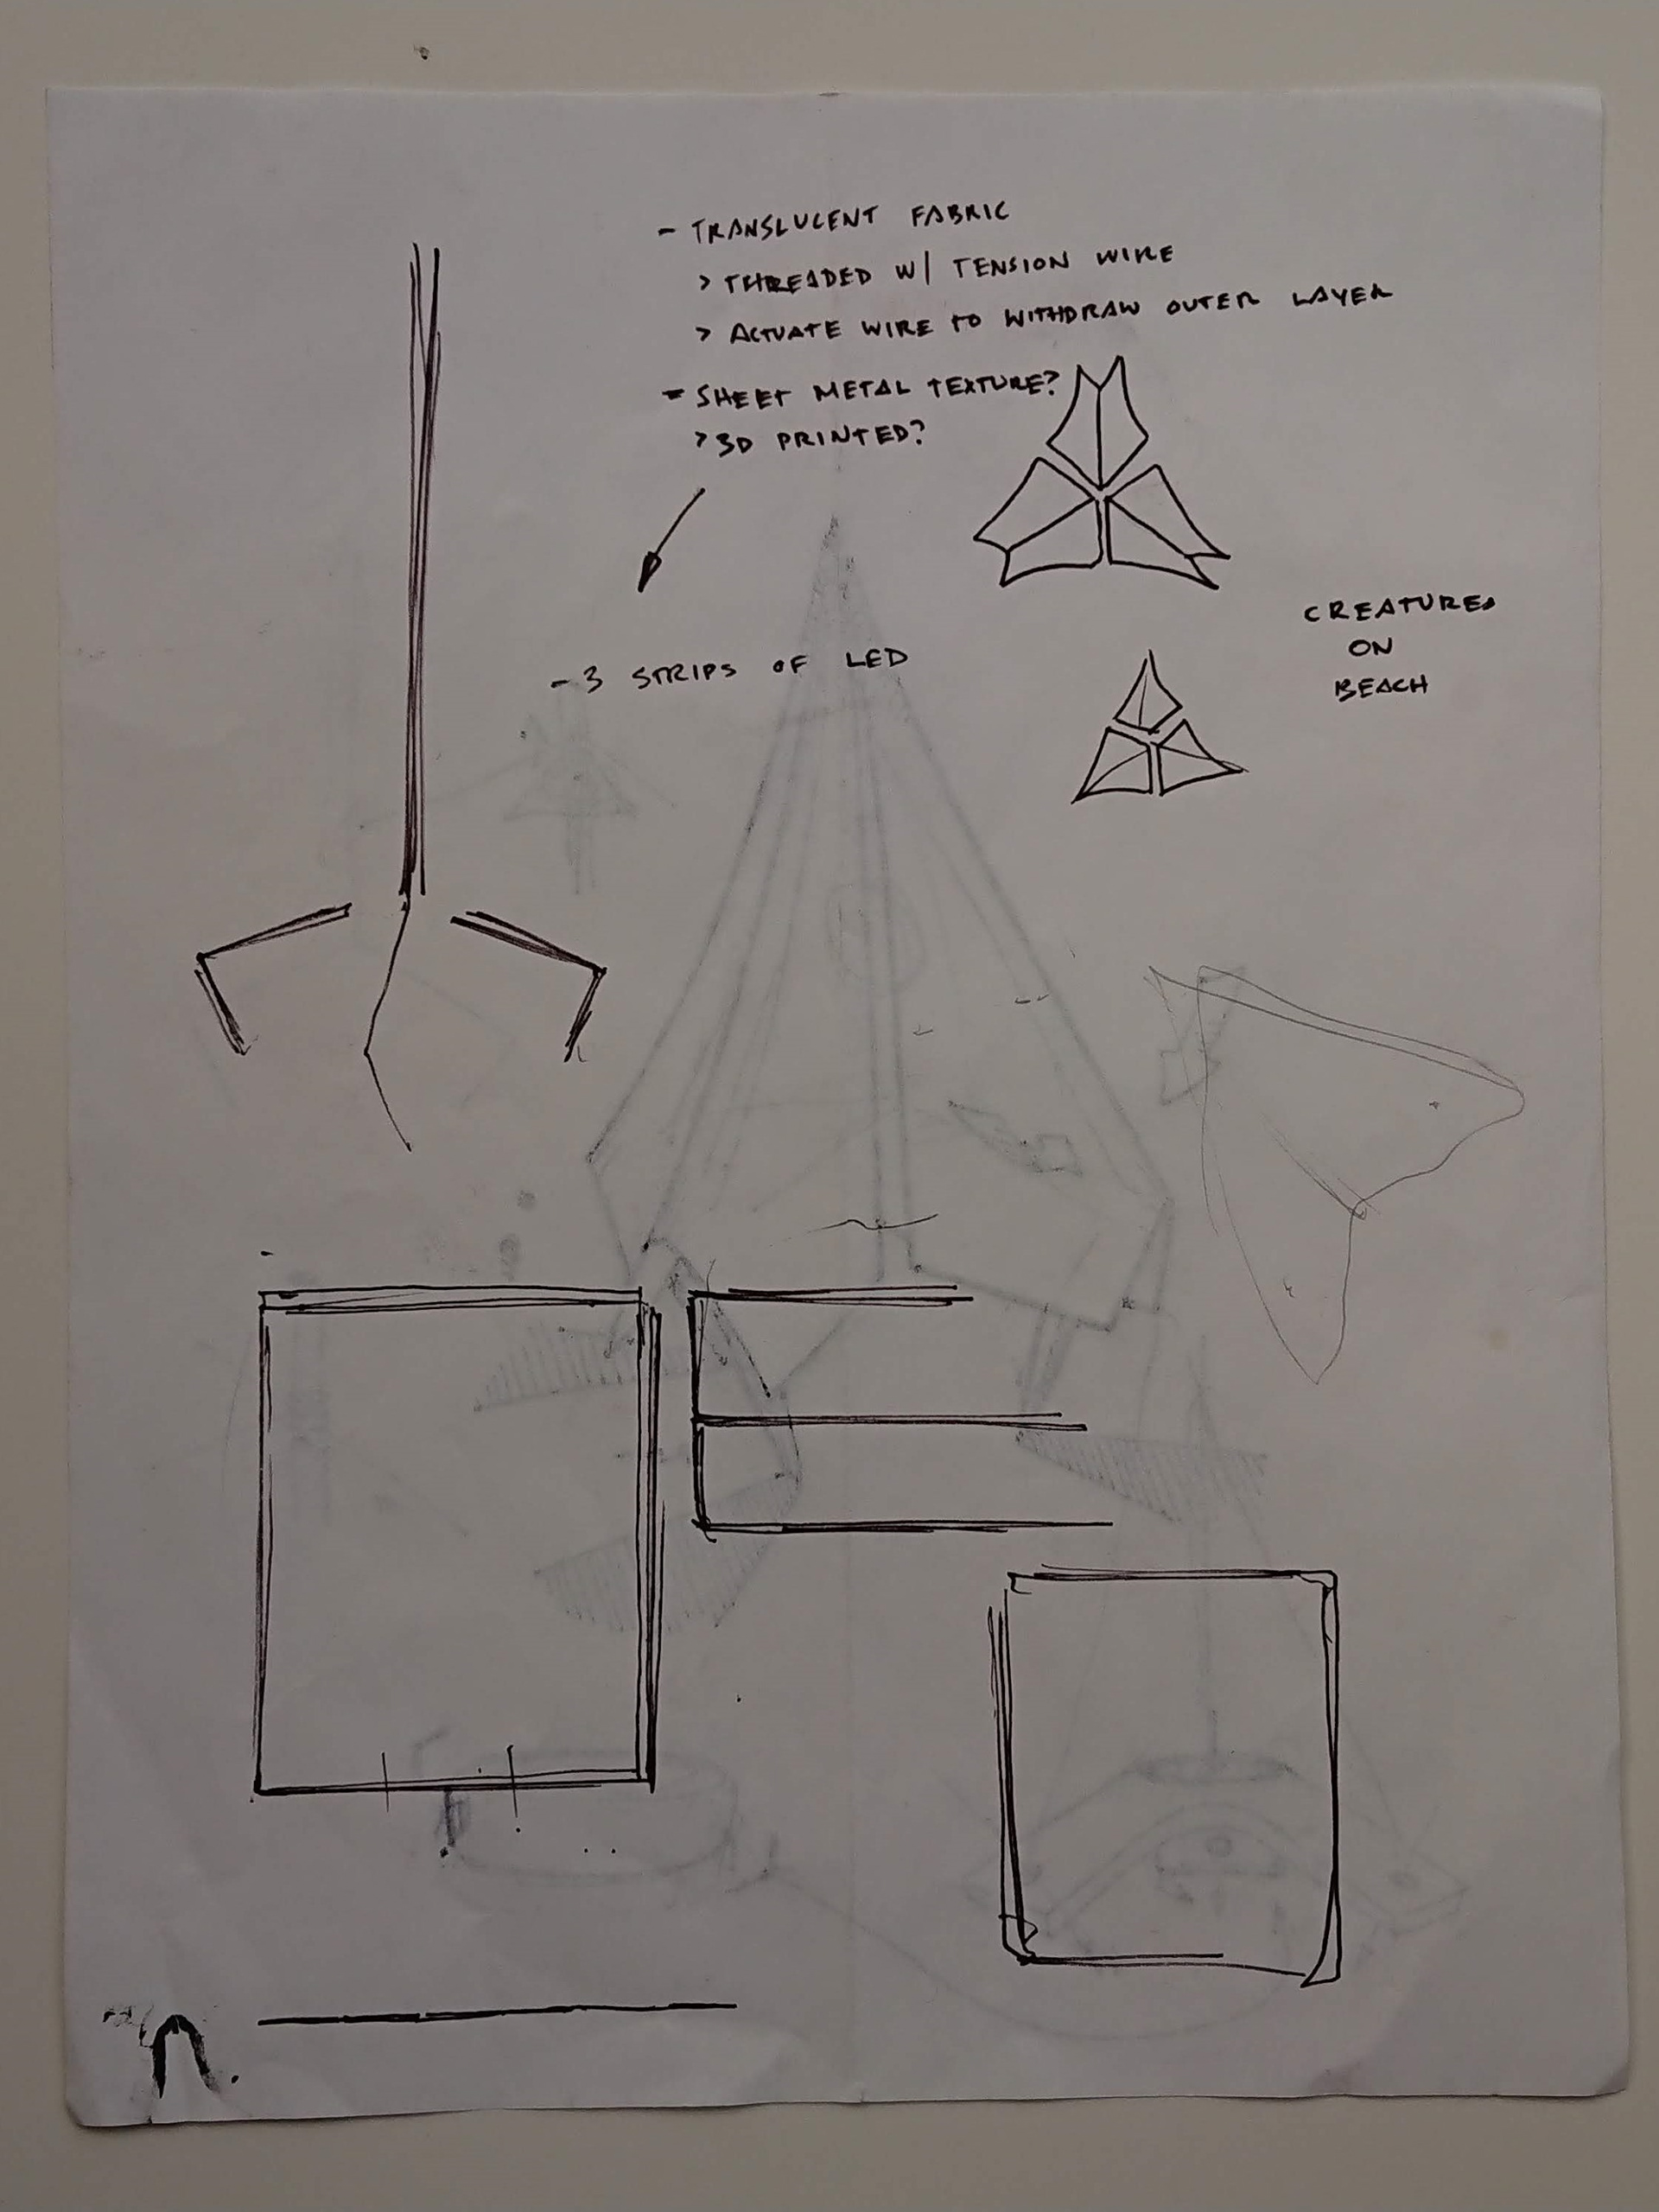 - TRANSLUCENT FABRIC
> THREADED W/ TENSION WIRE
> ACTUATE WIRE TO WITHDRAW OUTER LAYER
- SHEET METAL TEXTURE?
> 3D PRINTED?
- 3 STRIPS OF LED
CREATURES
ON
BEACH